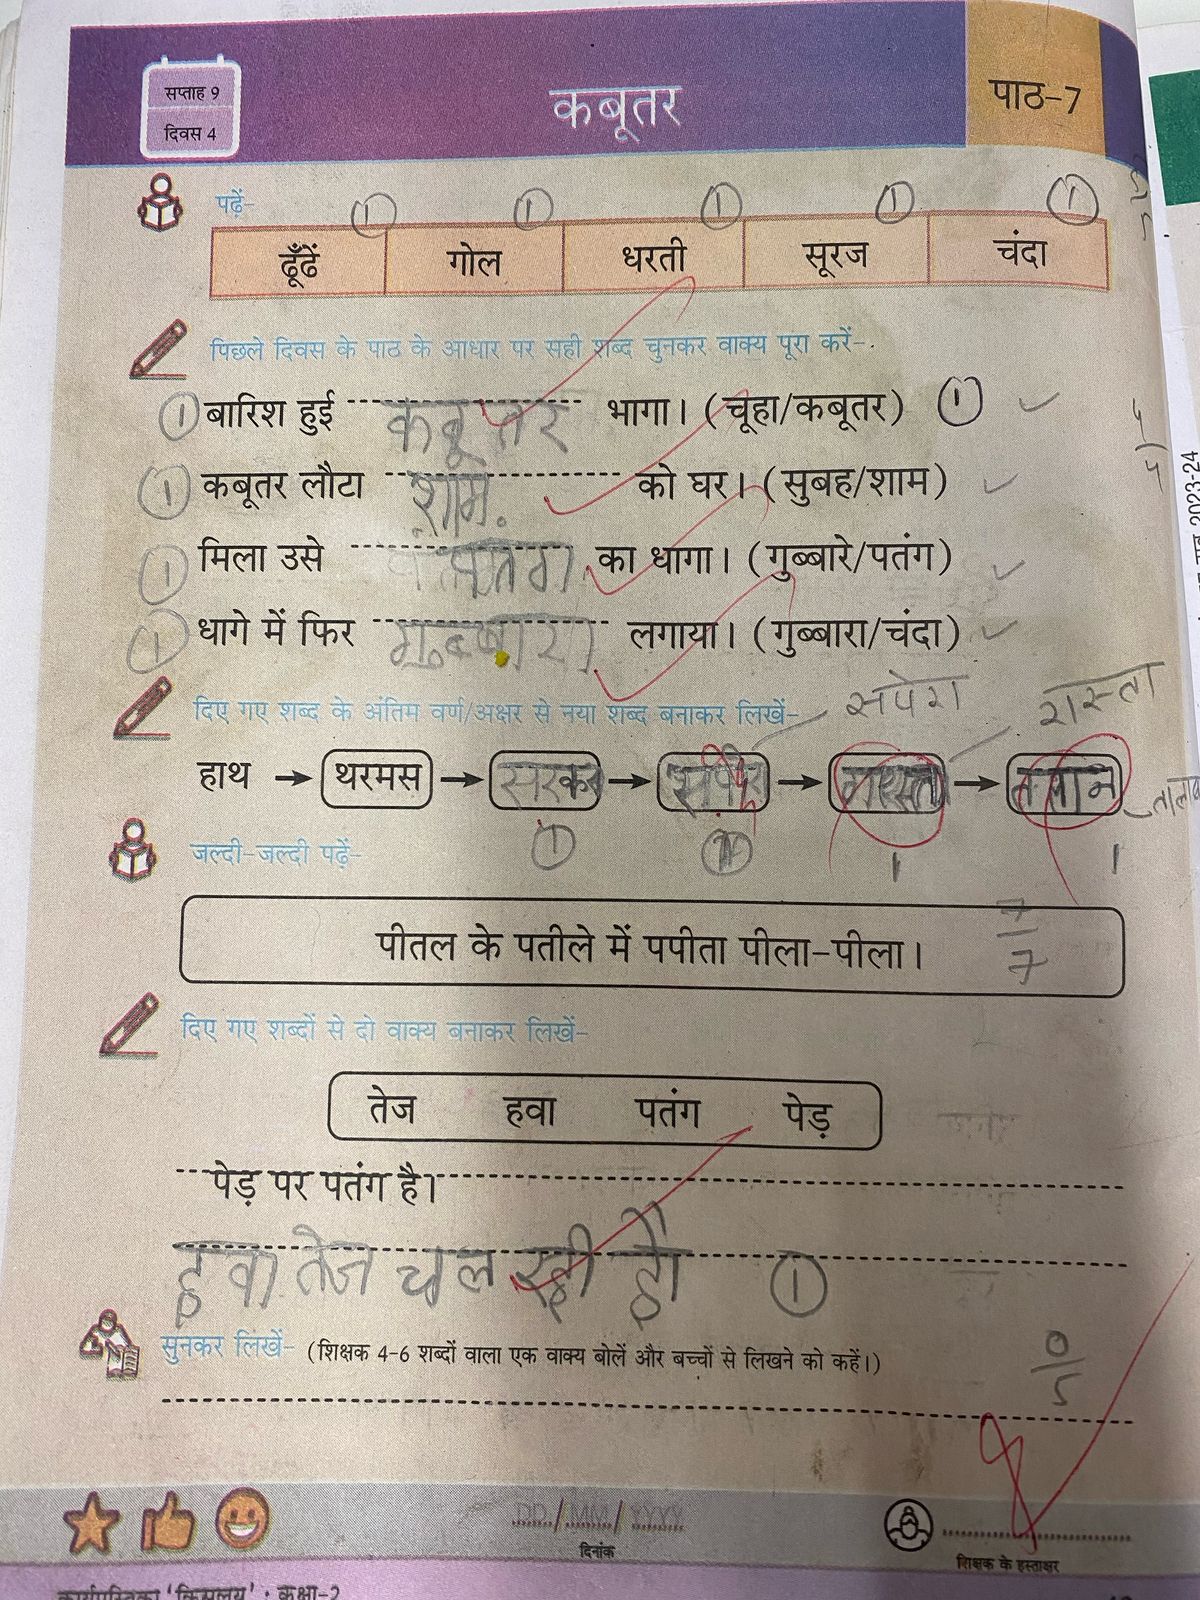 सप्ताह 9
दिवस 4
कबूतर
पाठ-7
पढ़ें-
1 1 1 1 1
ढूँढें गोल धरती सूरज चंदा
पिछले दिवस के पाठ के आधार पर सही शब्द चुनकर वाक्य पूरा करें-
1 बारिश हुई कबूतर भागा। (चूहा/कबूतर) 1
1 कबूतर लौटा शाम को घर। (सुबह/शाम)
4/4
1 मिला उसे पतंग का धागा। (गुब्बारे/पतंग)
2023-24
1 धागे में फिर गुब्बारा लगाया। (गुब्बारा/चंदा)
दिए गए शब्द के अंतिम वर्ण/अक्षर से नया शब्द बनाकर लिखें-
सपेरा रास्ता
हाथ → थरमस → सरकस → → →
1 1 1
जल्दी-जल्दी पढ़ें-
पीतल के पतीले में पपीता पीला-पीला।
7/7
दिए गए शब्दों से दो वाक्य बनाकर लिखें-
तेज हवा पतंग पेड़
पेड़ पर पतंग है।
हवा तेज चल रही है 1
सुनकर लिखें- (शिक्षक 4-6 शब्दों वाला एक वाक्य बोलें और बच्चों से लिखने को कहें।)
0/5
DD/MM/YYYY
दिनांक
शिक्षक के हस्ताक्षर
कार्यपुस्तिका 'किसलय' : कक्षा-2